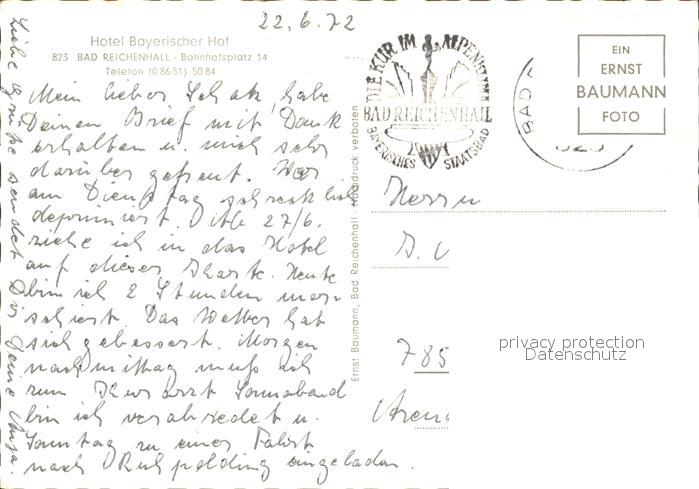 22.6.72
Hotel Bayerischer Hof
823 BAD REICHENHALL - Bahnhofsplatz 14
Telefon (0 86 51) 50 84
Mein lieber Schatz, habe
Deinen Brief mit Dank
erhalten u. mich sehr
darüber gefreut. War
am Dienstag schrecklich
deprimiert. 27/6.
ziehe ich in das Hotel
auf dieser Karte. Heute
bin ich 2 Stunden mar-
schiert. Das Wetter hat
sich gebessert. Morgen
nachmittag muß ich
zum Kurarzt Sonnabend
bin ich verabredet u.
Sonntag zu einer Fahrt
nach Ruhpolding eingeladen.
Liebe Grüße sendet Dir Deine
Ernst Baumann, Bad Reichenhall - Nachdruck verboten
DIE KUR IM ALPENKLIMA
BAD REICHENHALL
BAYERISCHES STAATSBAD
BAD
EIN
ERNST
BAUMANN
FOTO
Herrn
785
privacy protection
Datenschutz